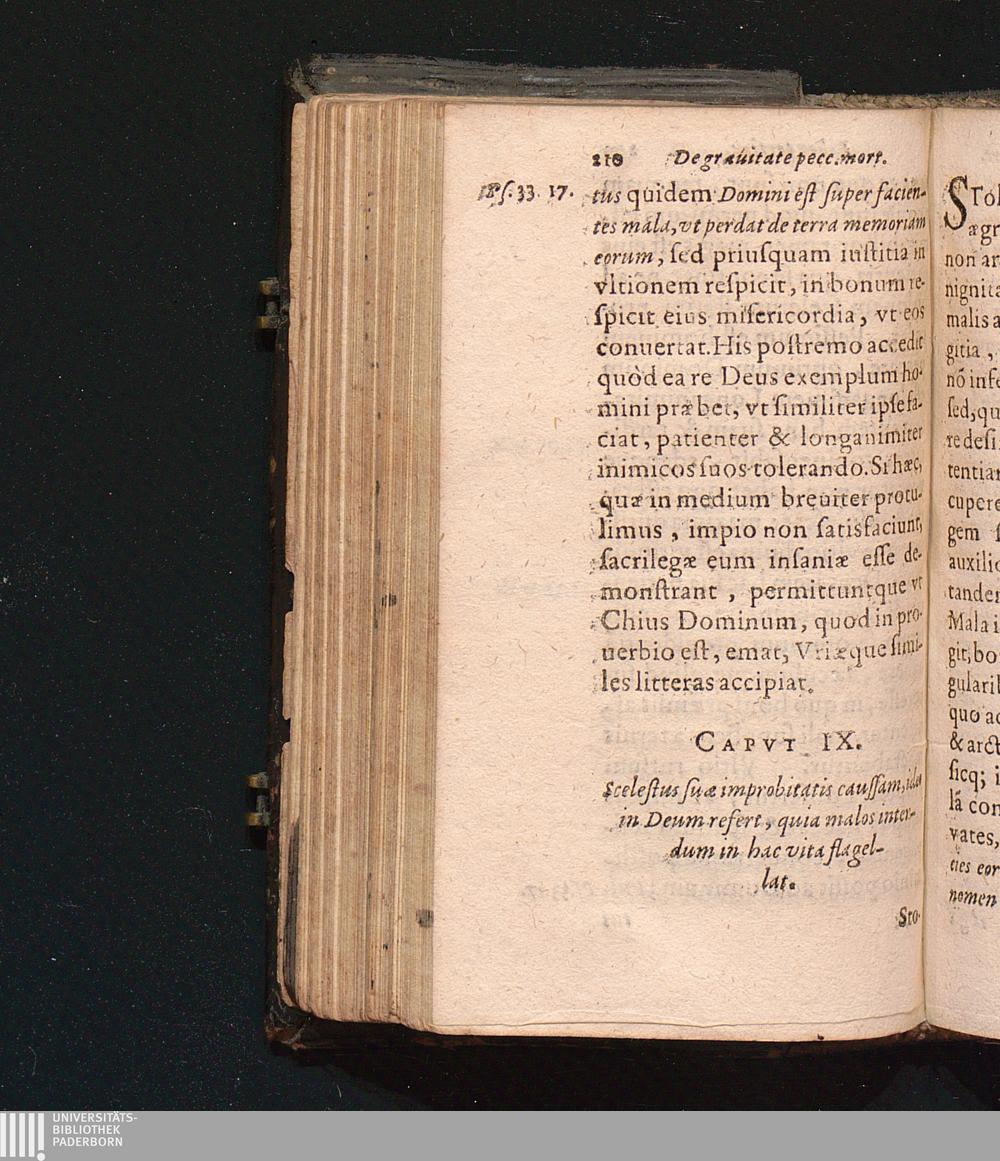 210 De grauitate pecc. mort.
Ps. 33. 17.
tus quidem Domini est super facien-
tes mala, vt perdat de terra memoriam
eorum, sed priuſquam iuſtitia in
vltionem reſpicit, in bonum re-
ſpicit eius miſericordia, vt eos
conuertat. His poſtremo accedit
quòd ea re Deus exemplum ho-
mini præbet, vt ſimiliter ipſe fa-
ciat, patienter & longanimiter
inimicos ſuos tolerando. Si hæc,
quæ in medium breuiter protu-
limus, impio non ſatisfaciunt,
ſacrilegæ eum inſaniæ eſſe de-
monſtrant, permittuntque vt
Chius Dominum, quod in pro-
uerbio eſt, emat, Vriæque ſimi-
les litteras accipiat.
CAPVT IX.
Sceleſtus ſuæ improbitatis cauſſam, ideo
in Deum refert, quia malos inter-
dum in hac vita flagel-
lat.
Sto-
STol
ægr
non ar
nignita
malis a
gitia,
nō infe
ſed, qu
re deſi
tentiar
cupere
gem ſ
auxilio
tander
Mala i
git, bo
gularib
quo ac
& arct
ſicq; i
lā con
vates,
ties eor
nomen
UNIVERSITÄTS-
BIBLIOTHEK
PADERBORN